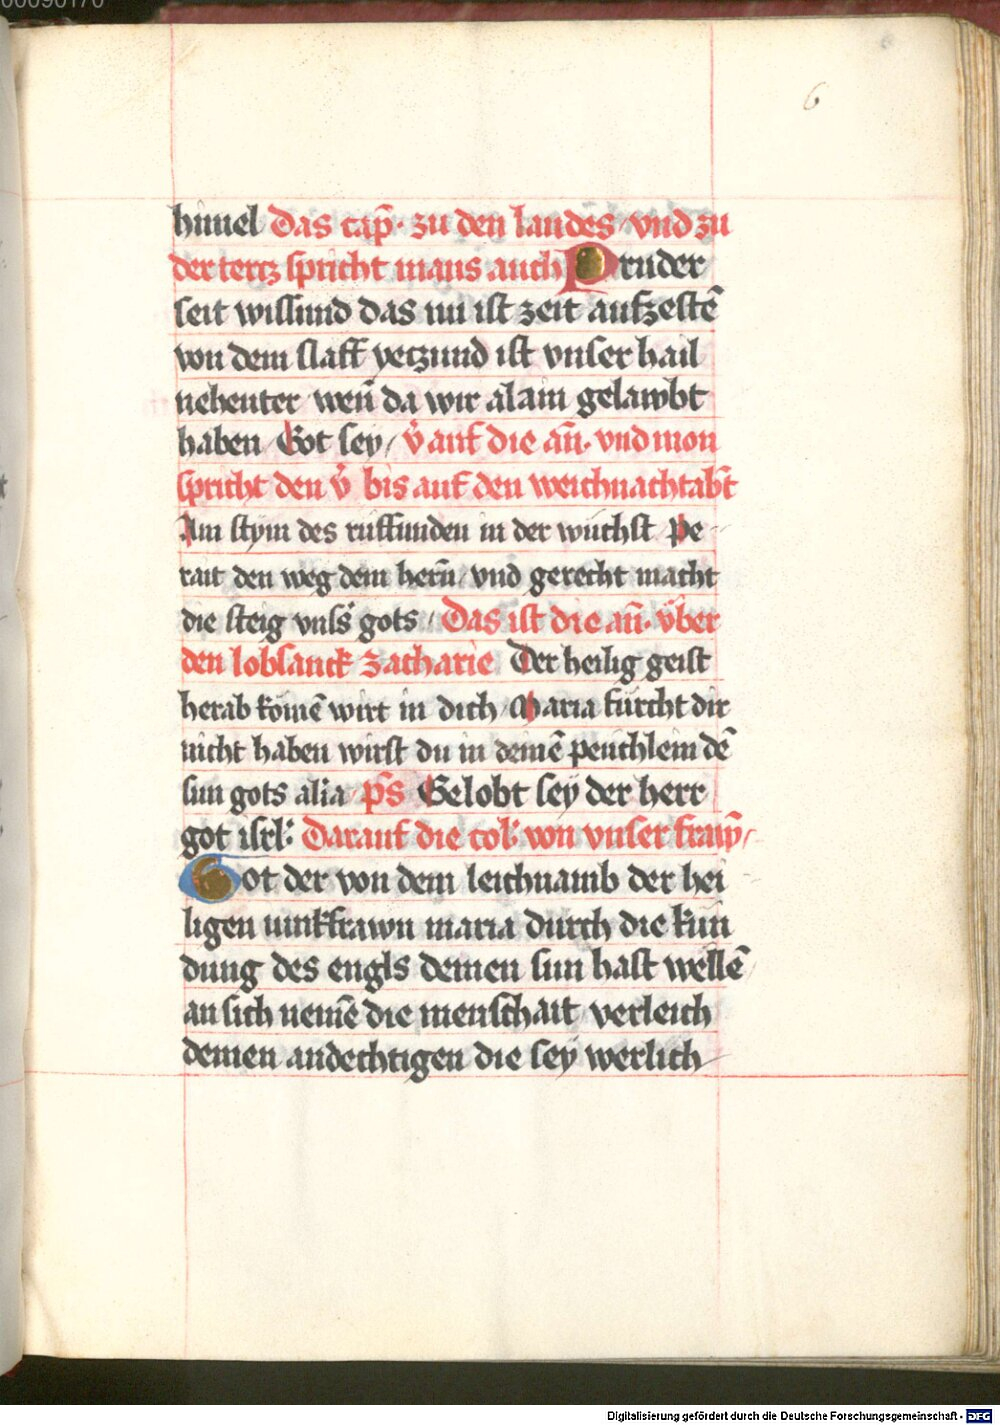 00090170
6
himel Das cap̄. zu den laudes vnd zu
der tertz spricht mans auch Pruder
seit wissund das nu ist zeit aufzestē
von dem slaff yetzund ist vnser hail
nehenter wen̄ da wir alain gelawbt
haben Got sey v̄ auf die an̄. vnd mon
spricht den v̄ bis auf den weichnachtabt
Am stym des ruffunden in der wuchst Pe
rait den weg dem hern̄ vnd gerecht macht
die steig vnss gots Das ist die an̄. v̈ber
den lobsanck zacharie Der heilig geist
herab komē wirt in dich Maria furcht dir
nicht haben wirst du in deinē peuchlein dē
sun gots alia ps Gelobt sey der herr
got isrl: Darauf die col: von vnser frawn̄
Got der von dem leichnamb der hei
ligen iunkfrawn maria durch die kun
dung des engls deinen sun hast wellē
an sich nemē die menschait verleich
deinen andechtigen die sey werlich
Digitalisierung gefördert durch die Deutsche Forschungsgemeinschaft - DFG